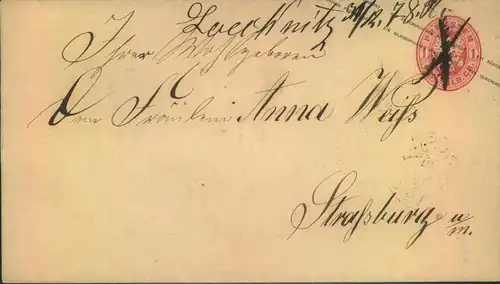 Loecknitz 9/12. 78.
PREUSSEN
Ihrer Wohlgeboren
Dem Fräulein Anna Weiß
Straßburg u/m.